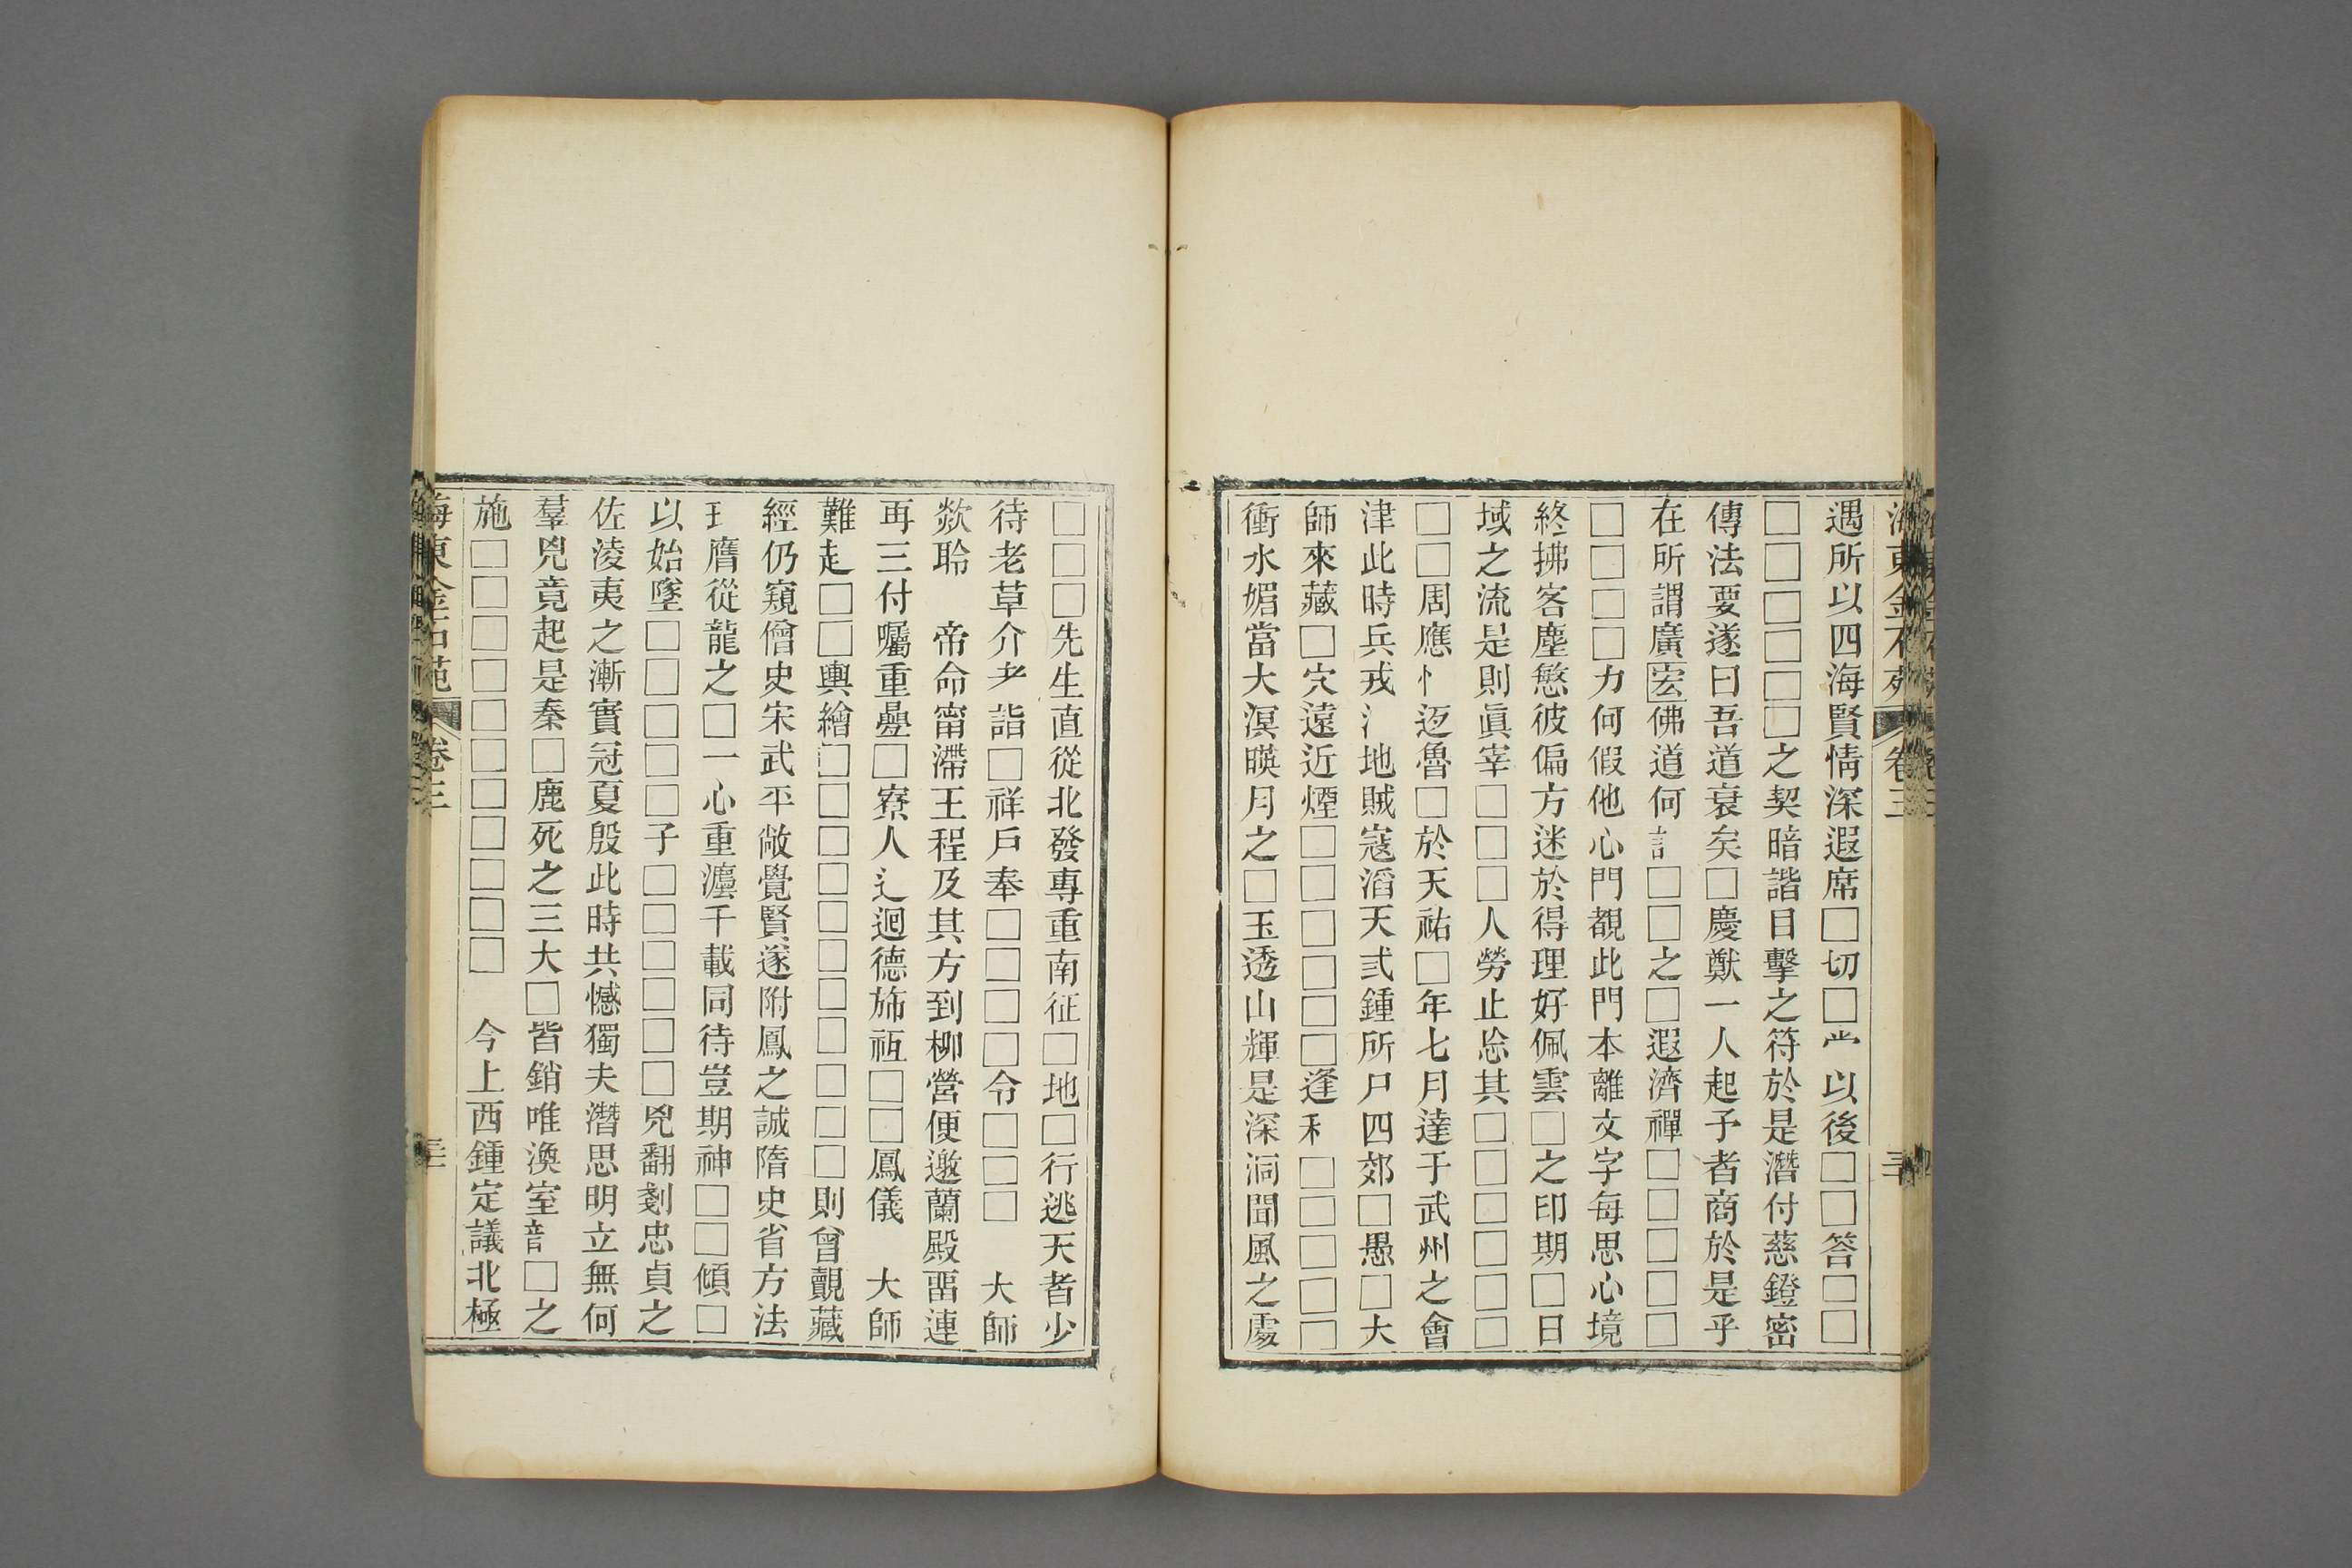 海東金石苑 卷三
遇所以四海賢情深遐席□切□以後□□答□□
□□□□□□之契暗諧目擊之符於是潛付慈鐙密
傳法要遂曰吾道衰矣□慶猷一人起予者商於是乎
在所謂廣宏佛道何□□之□遐濟禪□□□□□
□□□□力何假他心門覩此門本離文字每思心境
終拂客塵慜彼偏方迷於得理好佩雲□之印期□日
域之流是則眞宰□□□人勞止忩其□□□□□□
□□周應迊魯□於天祐□年七月達于武州之會
津此時兵戎地賊寇滔天弎鍾所尸四郊□愚□大
師來藏□穴遠近煙□□□□□□逢□□□□□
衝水媚當大溟暎月之□玉透山輝是深洞聞風之處
□□□先生直從北發專重南征□地□行逃天者少
待老草介詣□祥戶奉□□□□令□□□ 大師
欻聆 帝命甯滯王程及其方到柳營便邀蘭殿畱連
再三付囑重疊□寮人迴德斾祗□□鳳儀 大師
難走□□輿繪□□□□□□□□□□□則曾覿藏
經仍窺僧史宋武平敵覺賢遂附鳳之誠隋史省方法
膺從龍之□一心重灋千載同待豈期神□□傾□
以始墜□□□□□子□□□□□□兇翻剗忠貞之
佐淩夷之漸實冠夏殷此時共憾獨夫潛思明立無何
羣兇竟起是秦□鹿死之三大□皆銷唯渙室□之
施□□□□□□□□□□□ 今上西鍾定議北極
海東金石苑 卷三